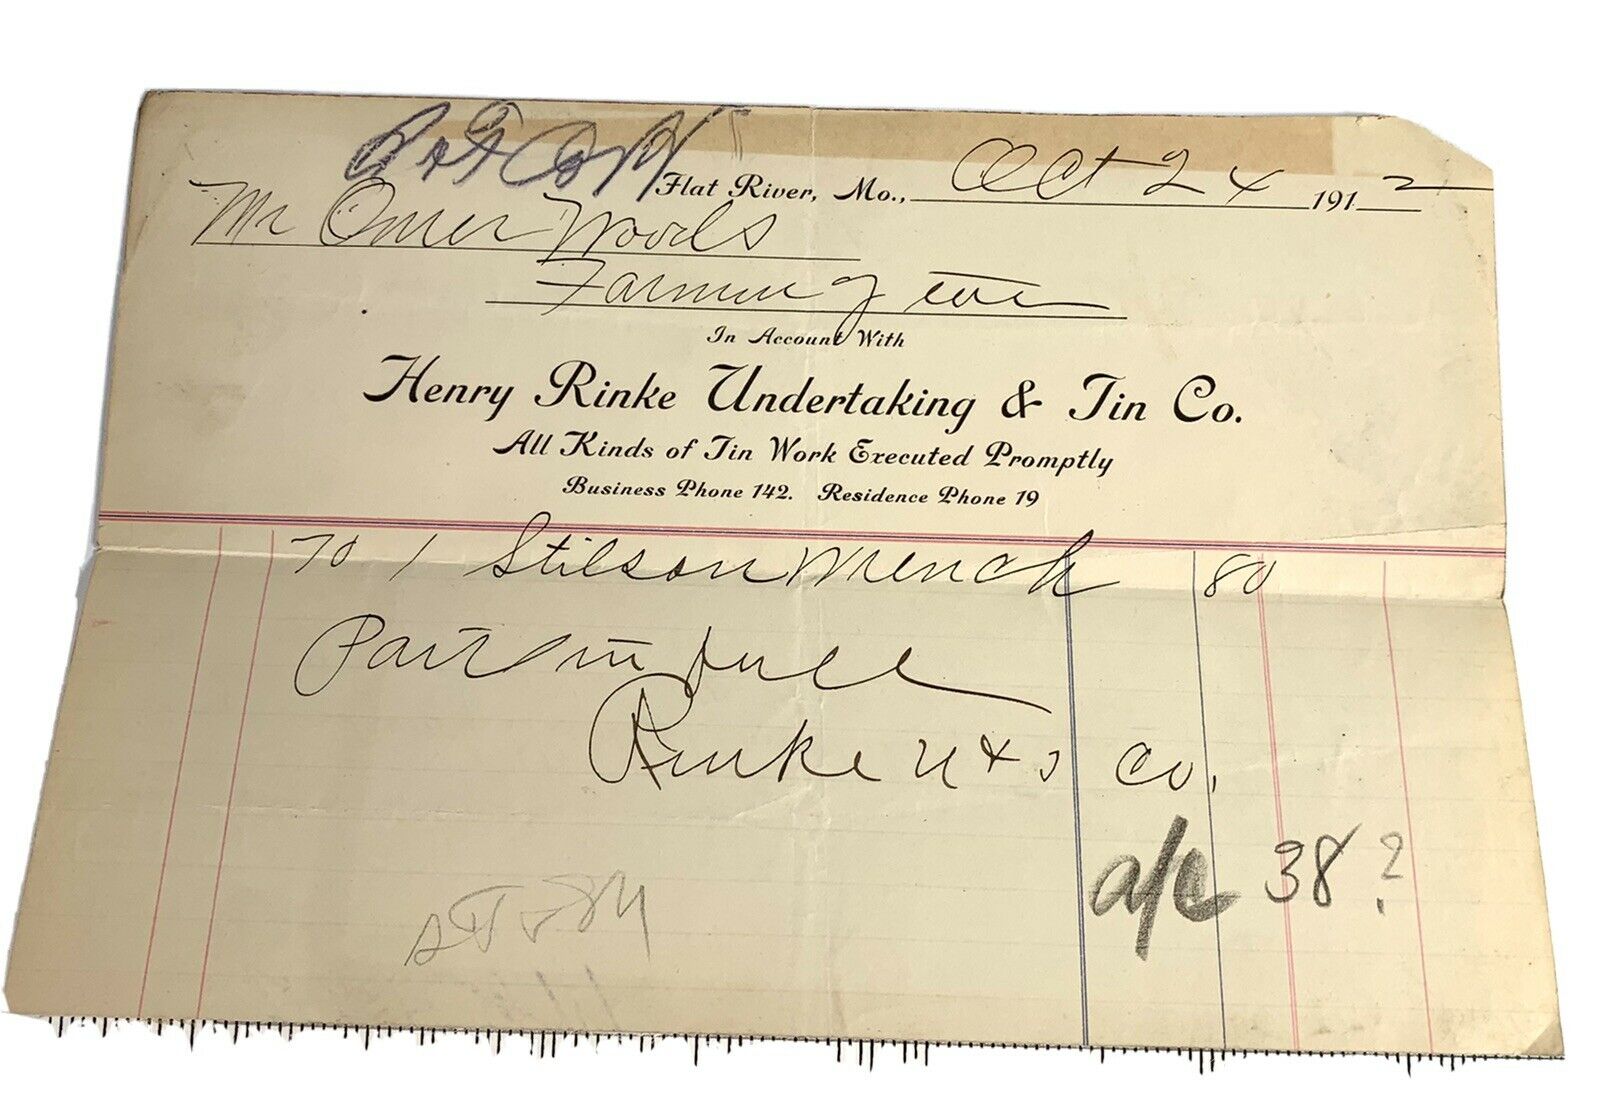 Flat River, Mo., Oct 24 1912
Mr Omer Woods
Farmington
In Account With
Henry Rinke Undertaking & Tin Co.
All Kinds of Tin Work Executed Promptly
Business Phone 142. Residence Phone 19
To 1 Stilson Wrench 80
Paid in full
Rinke U & T Co.
a/c 38?